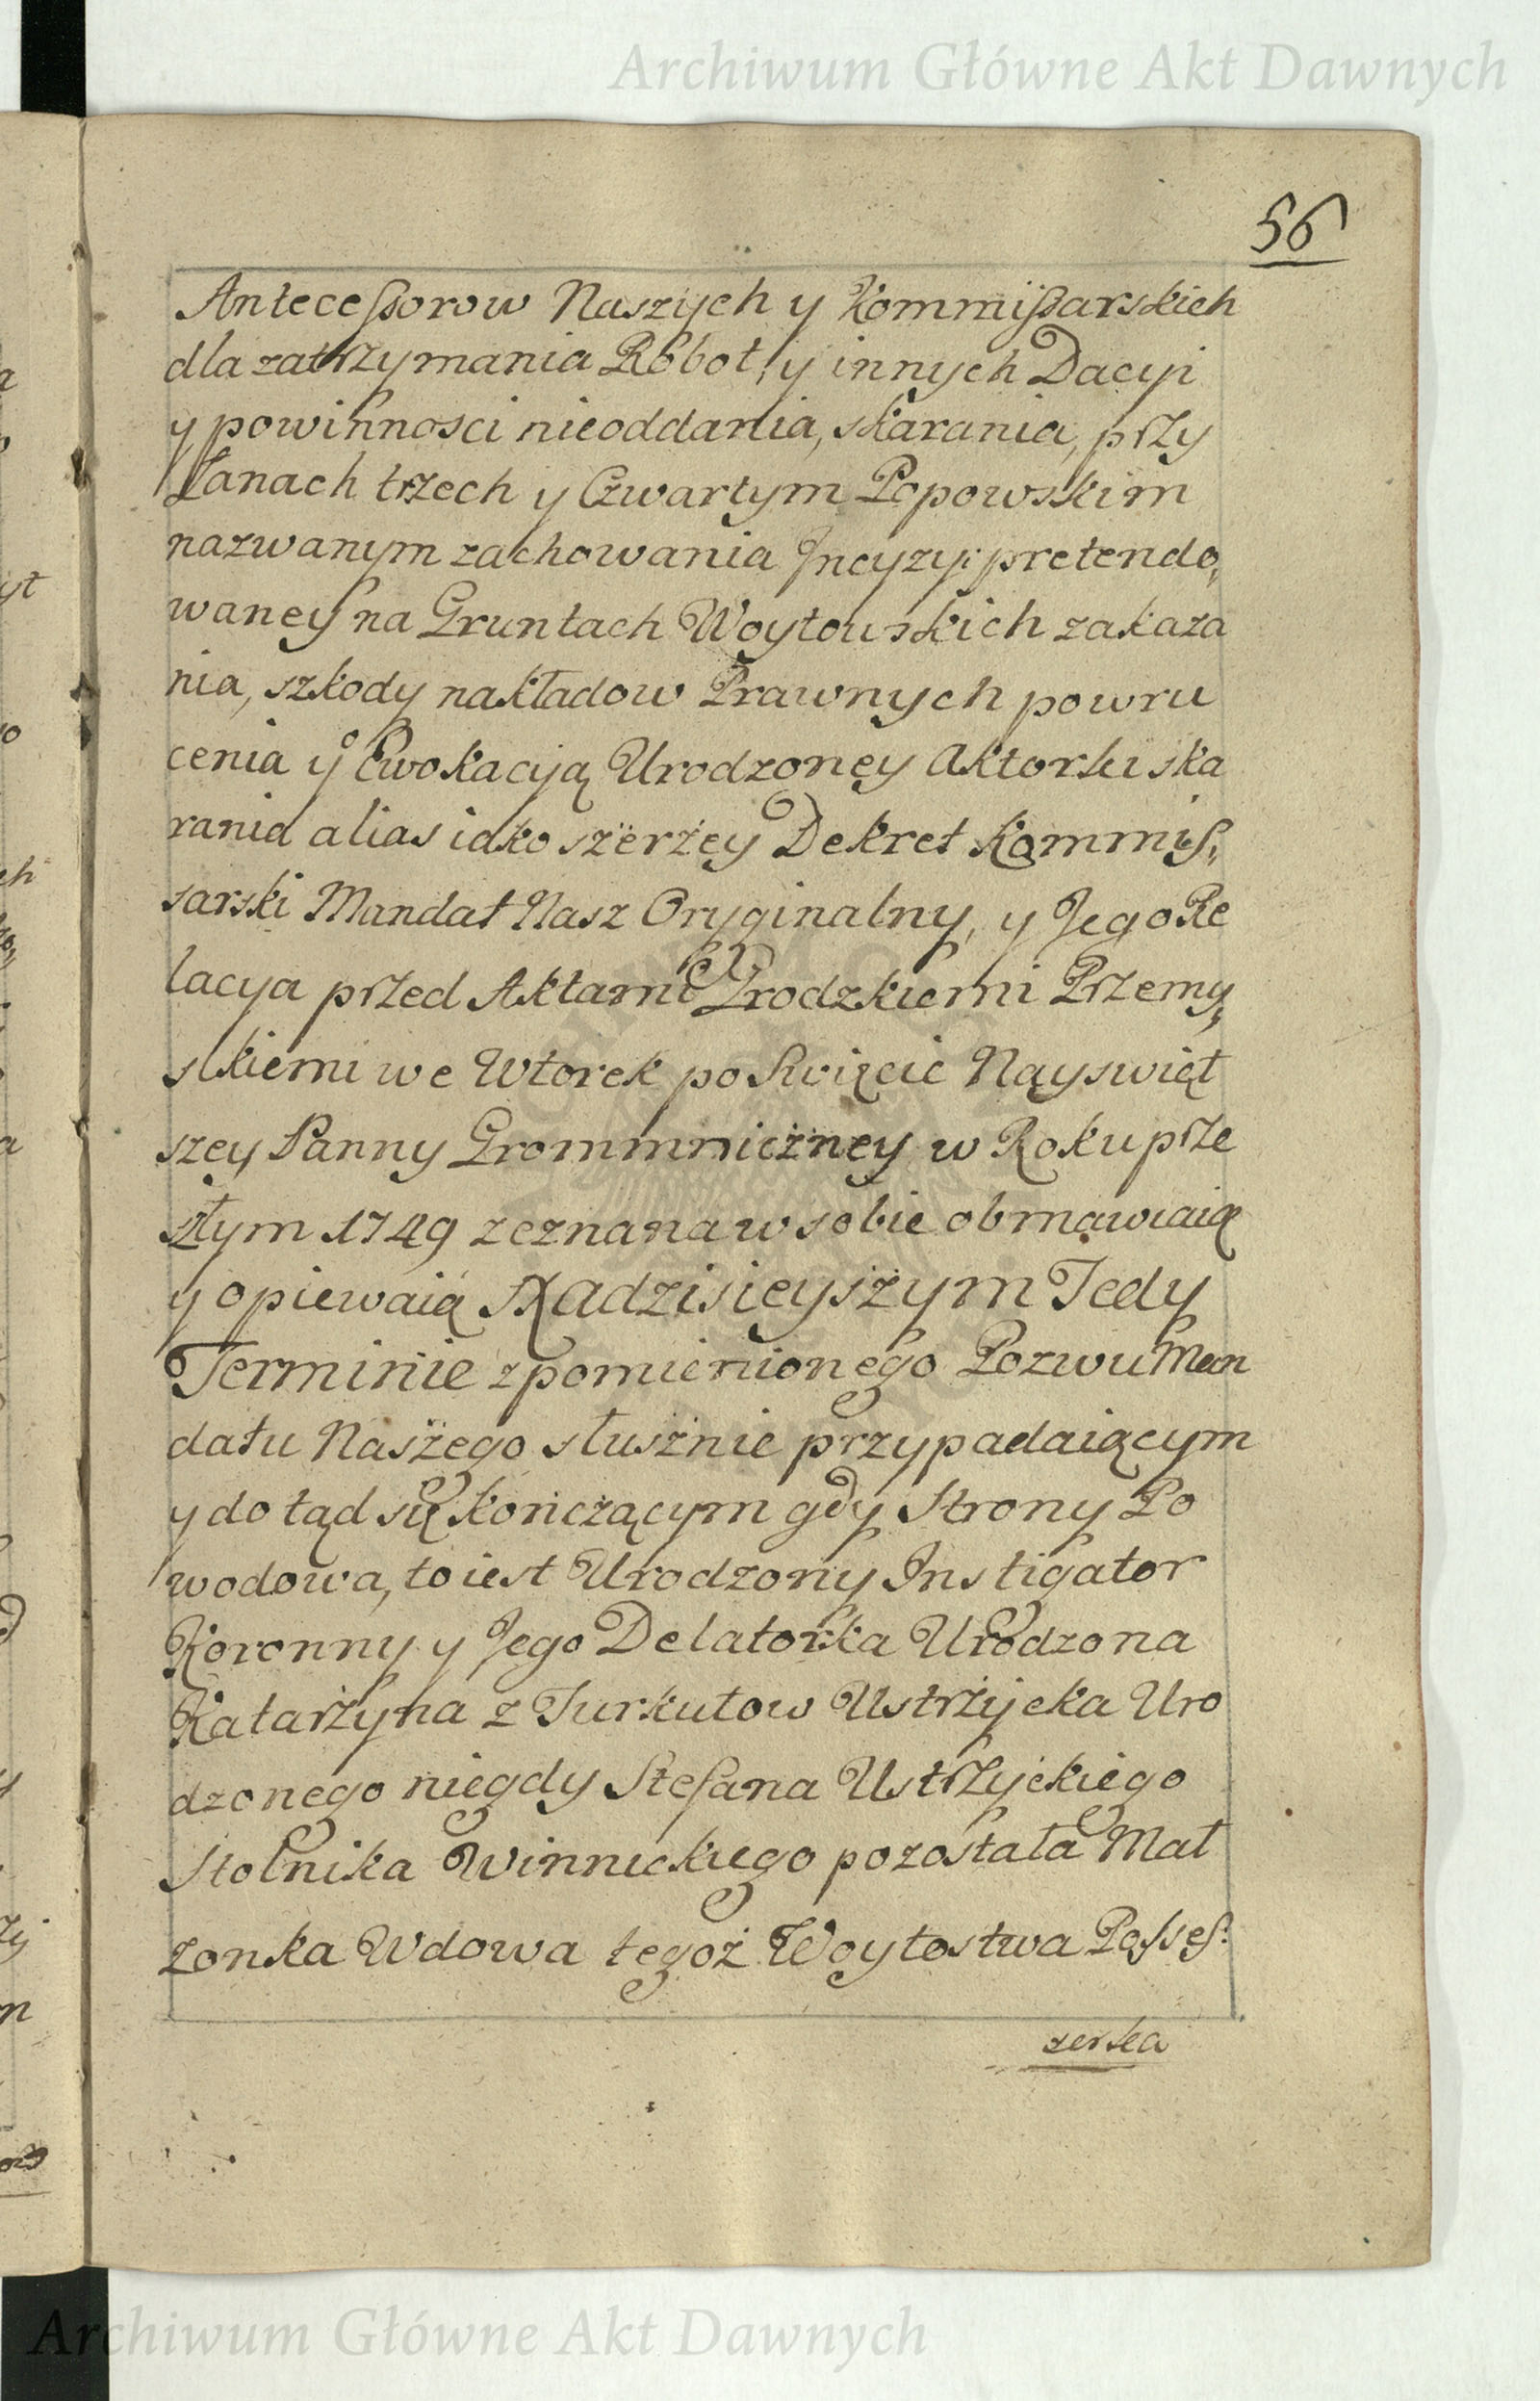 Archiwum Główne Akt Dawnych
56
Antecessorow Naszych y Kommissarskich
dla zatrzymania Robot, y innych Dacyi
y powinnosci nieoddania, skarania, przy
Łanach trzech y Czwartym Popowskim
nazwanym zachowania Jncyzyi pretendo„
waney na Gruntach Woytowskich zakaza
nia, szkody nakładow Prawnych powru
cenia y Ewokacyą Urodzoney Aktorki ska
rania alias iako szerzey Dekret Kommis„
sarski Mandat Nasz Oryginalny, y Jego Re
lacya przed Aktami Grodzkiemi Przemy„
slkiemi we Wtorek po Swięcie Nayswięt
szey Panny Grommniczney w Roku prze
szłym 1749 zeznana w sobie obmawiaią
y opiewaią Nadzisieyszym Tedy
Terminie z pomienionego Pozwu Man
datu Naszego słusznie przypadaiącym
y do tąd się kończącym gdy Strony Po
wodowa, to iest Urodzony Jnstigator
Koronny y Jego Delatorka Urodzona
Katarzyna z Turkutow Ustrzycka Uro
dzonego niegdy Stefana Ustrzyckiego
Stolnika Winnickiego pozostała Mał
zonka Wdowa tegoż Woytostwa Posses:
zerka
Archiwum Główne Akt Dawnych